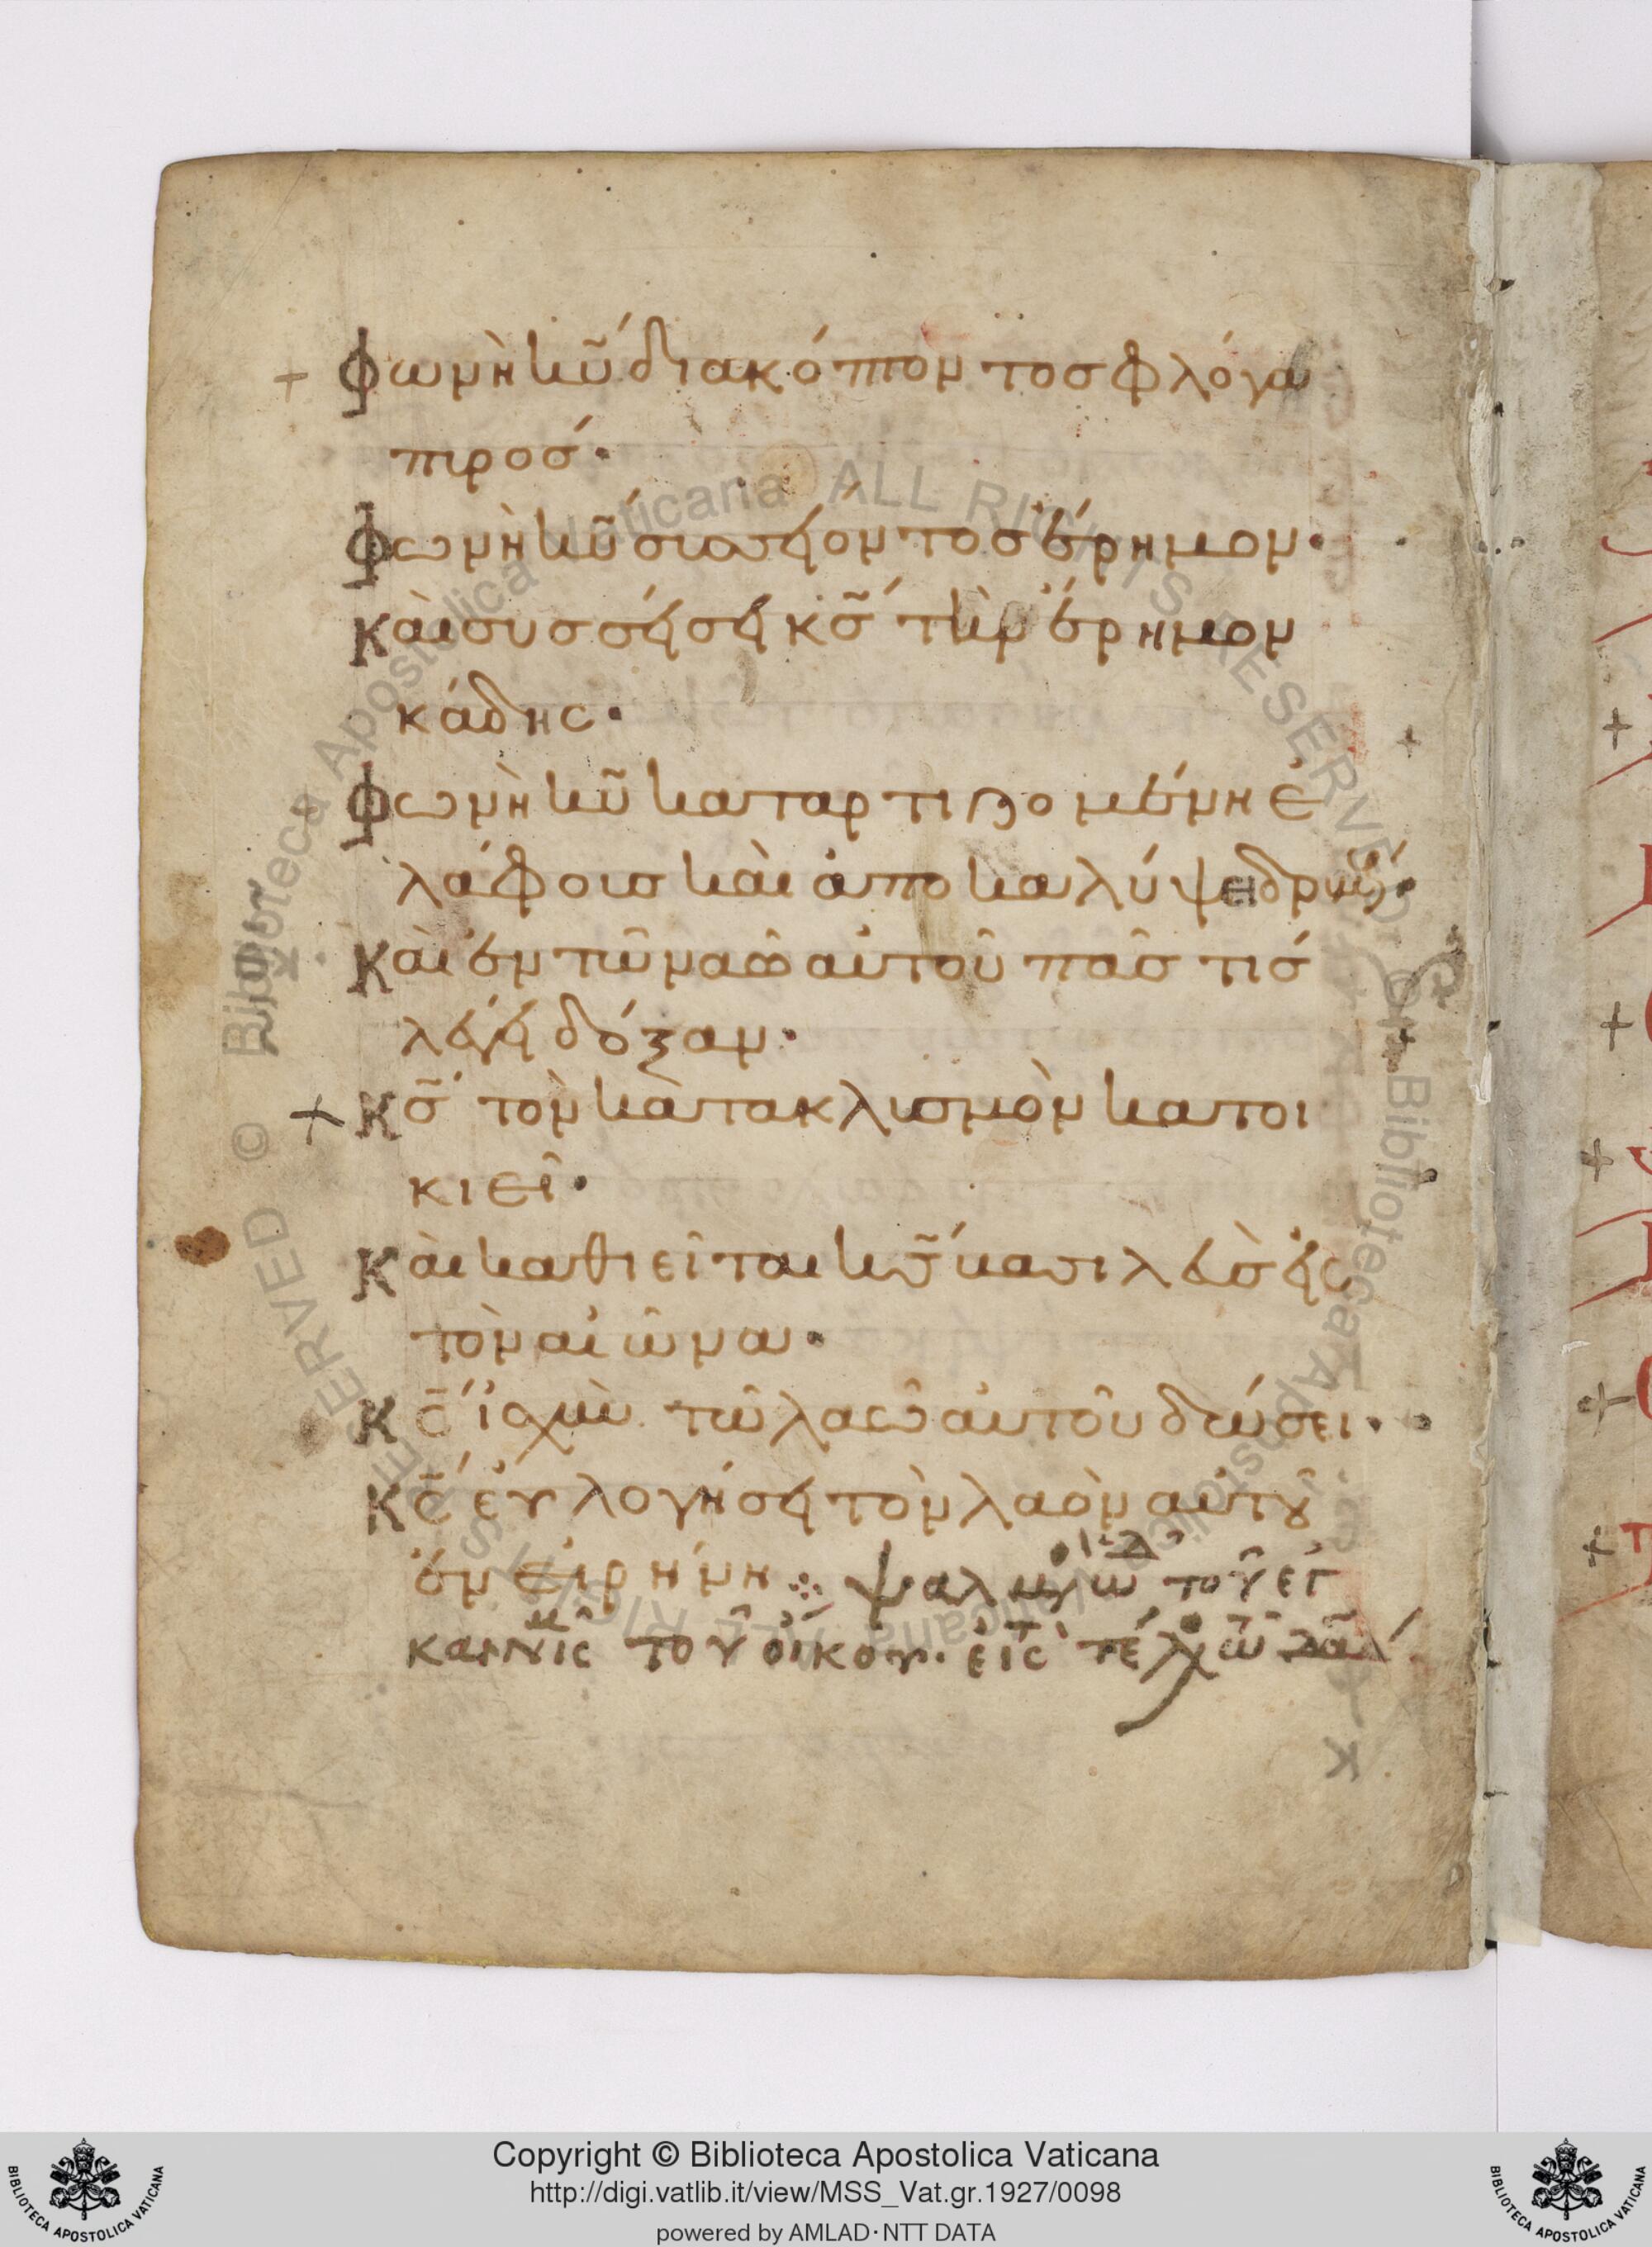 Φωνὴ κ̅υ̅ διακόπτοντος φλόγα
πυρός·
Φωνὴ κ̅υ̅ συσείοντος ἔρημον·
Καὶ συσσείσει κ̅ς̅ τὴν ἔρημον
κάδης·
Φωνὴ κ̅υ̅ καταρτιζομένη ἐ
λάφους καὶ ἀποκαλύψει δρυμούς·
Καὶ ἐν τῶ ναῶ αὐτοῦ πᾶς τίς
λέγει δόξαν·
Κ̅ς̅ τὸν κατακλυσμὸν κατοι
κιεῖ·
Καὶ καθιεῖται κ̅ς̅ βασιλεὺς εἰς
τὸν αἰῶνα·
Κ̅ς̅ ἰσχὺν τῶ λαῶ αὐτοῦ δώσει·
Κ̅ς̅ εὐλογήσει τὸν λαὸν αὐτοῦ
ἐν εἰρήνη ⁘ ψαλμὸς ὠδ τοῦ ἐγ
καινισμ τοῦ οἴκου· εἰς τέλος τῶ δαδ
Copyright © Biblioteca Apostolica Vaticana
http://digi.vatlib.it/view/MSS_Vat.gr.1927/0098
powered by AMLAD·NTT DATA